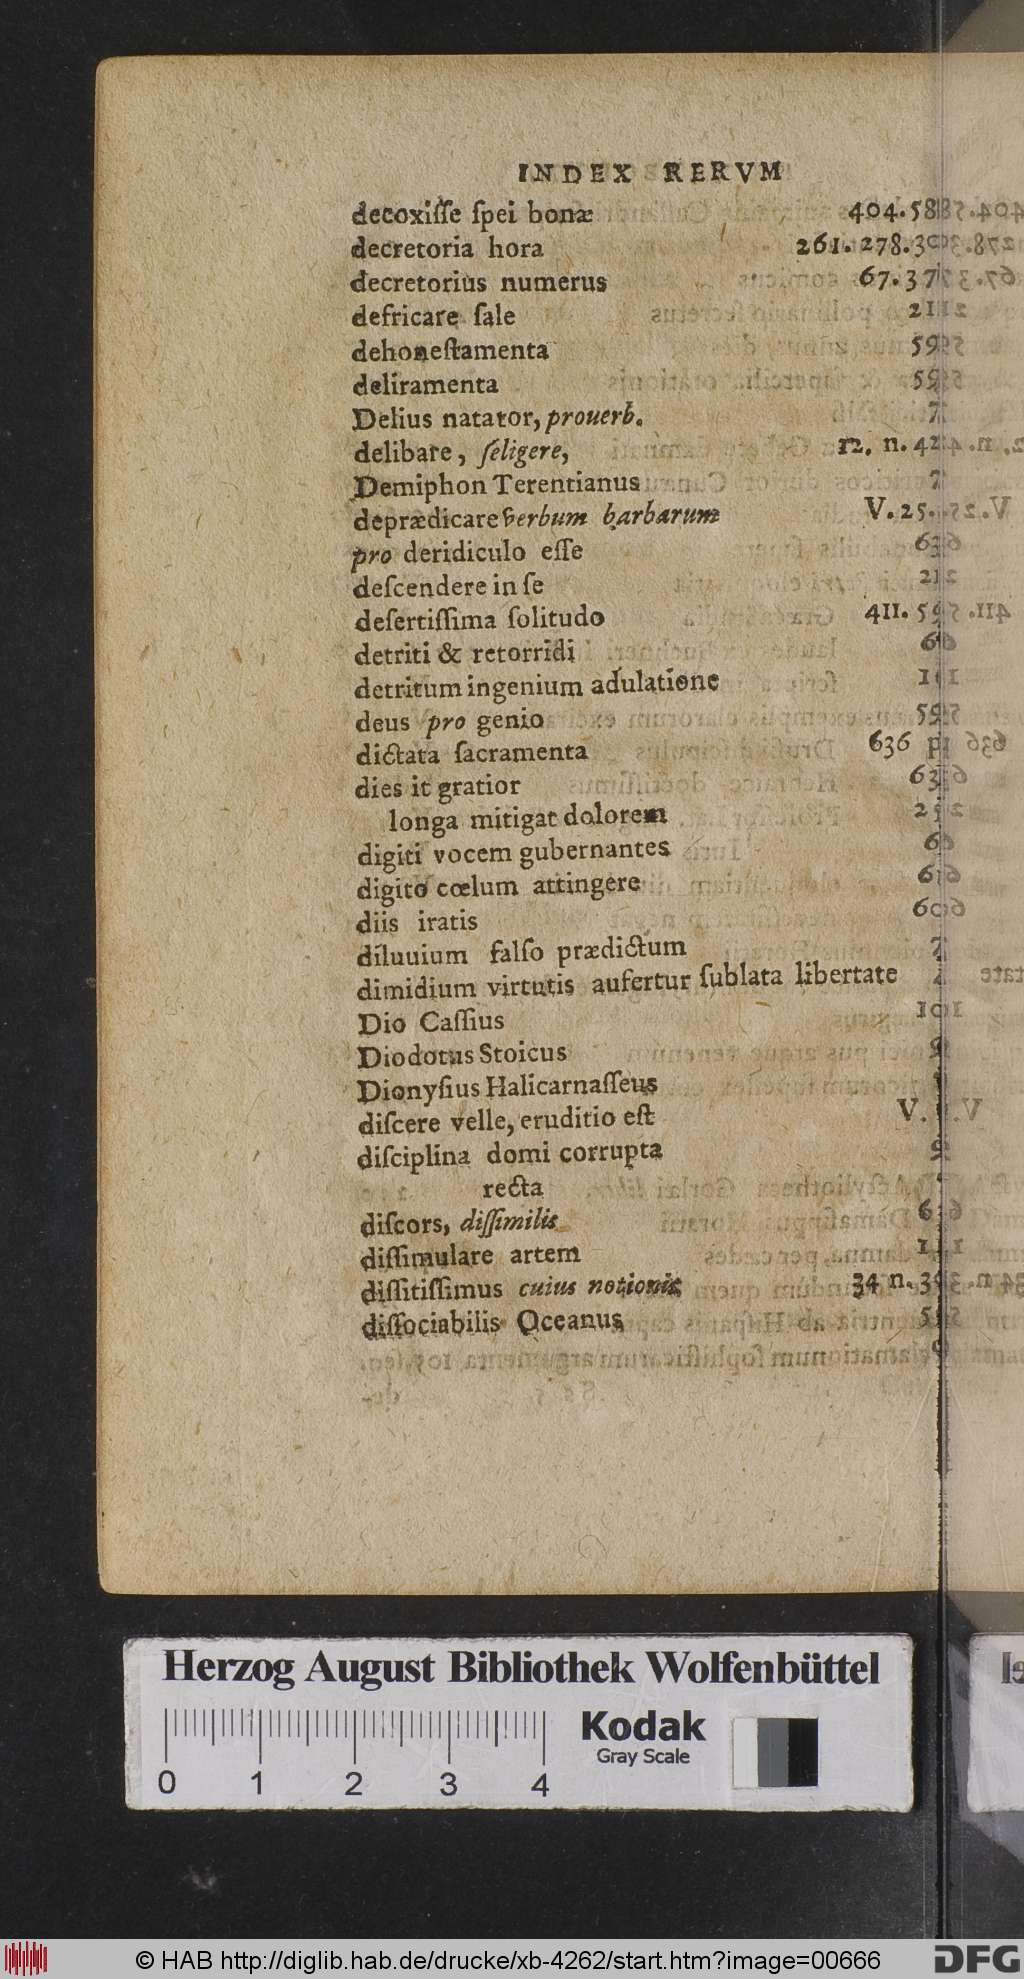 INDEX RERVM
decoxiſſe ſpei bonæ 404.58
decretoria hora 261.278.30
decretorius numerus 67.37
defricare ſale 21
dehoneſtamenta 59
deliramenta 59
Delius natator, prouerb. 7
delibare, ſeligere, 12. n. 42
Demiphon Terentianus 7
deprædicare verbum barbarum V.25.
pro deridiculo eſſe 63
deſcendere in ſe 21
deſertiſſima ſolitudo 411.59
detriti & retorridi 6
detritum ingenium adulatione 1
deus pro genio 59
dictata ſacramenta 636
dies it gratior 63
longa mitigat dolorem 25
digiti vocem gubernantes 6
digito cœlum attingere 6
diis iratis 60
diluuium falſo prædictum 7
dimidium virtutis aufertur ſublata libertate
Dio Caſſius 10
Diodotus Stoicus
Dionyſius Halicarnaſſeus
diſcere velle, eruditio eſt V.
diſciplina domi corrupta
recta
diſcors, diſſimilis 6
diſſimulare artem 1
diſſitiſſimus cuius notionis 34 n. 3
diſſociabilis Oceanus 5
Herzog August Bibliothek Wolfenbüttel
Kodak
Gray Scale
0 1 2 3 4
© HAB http://diglib.hab.de/drucke/xb-4262/start.htm?image=00666
DFG